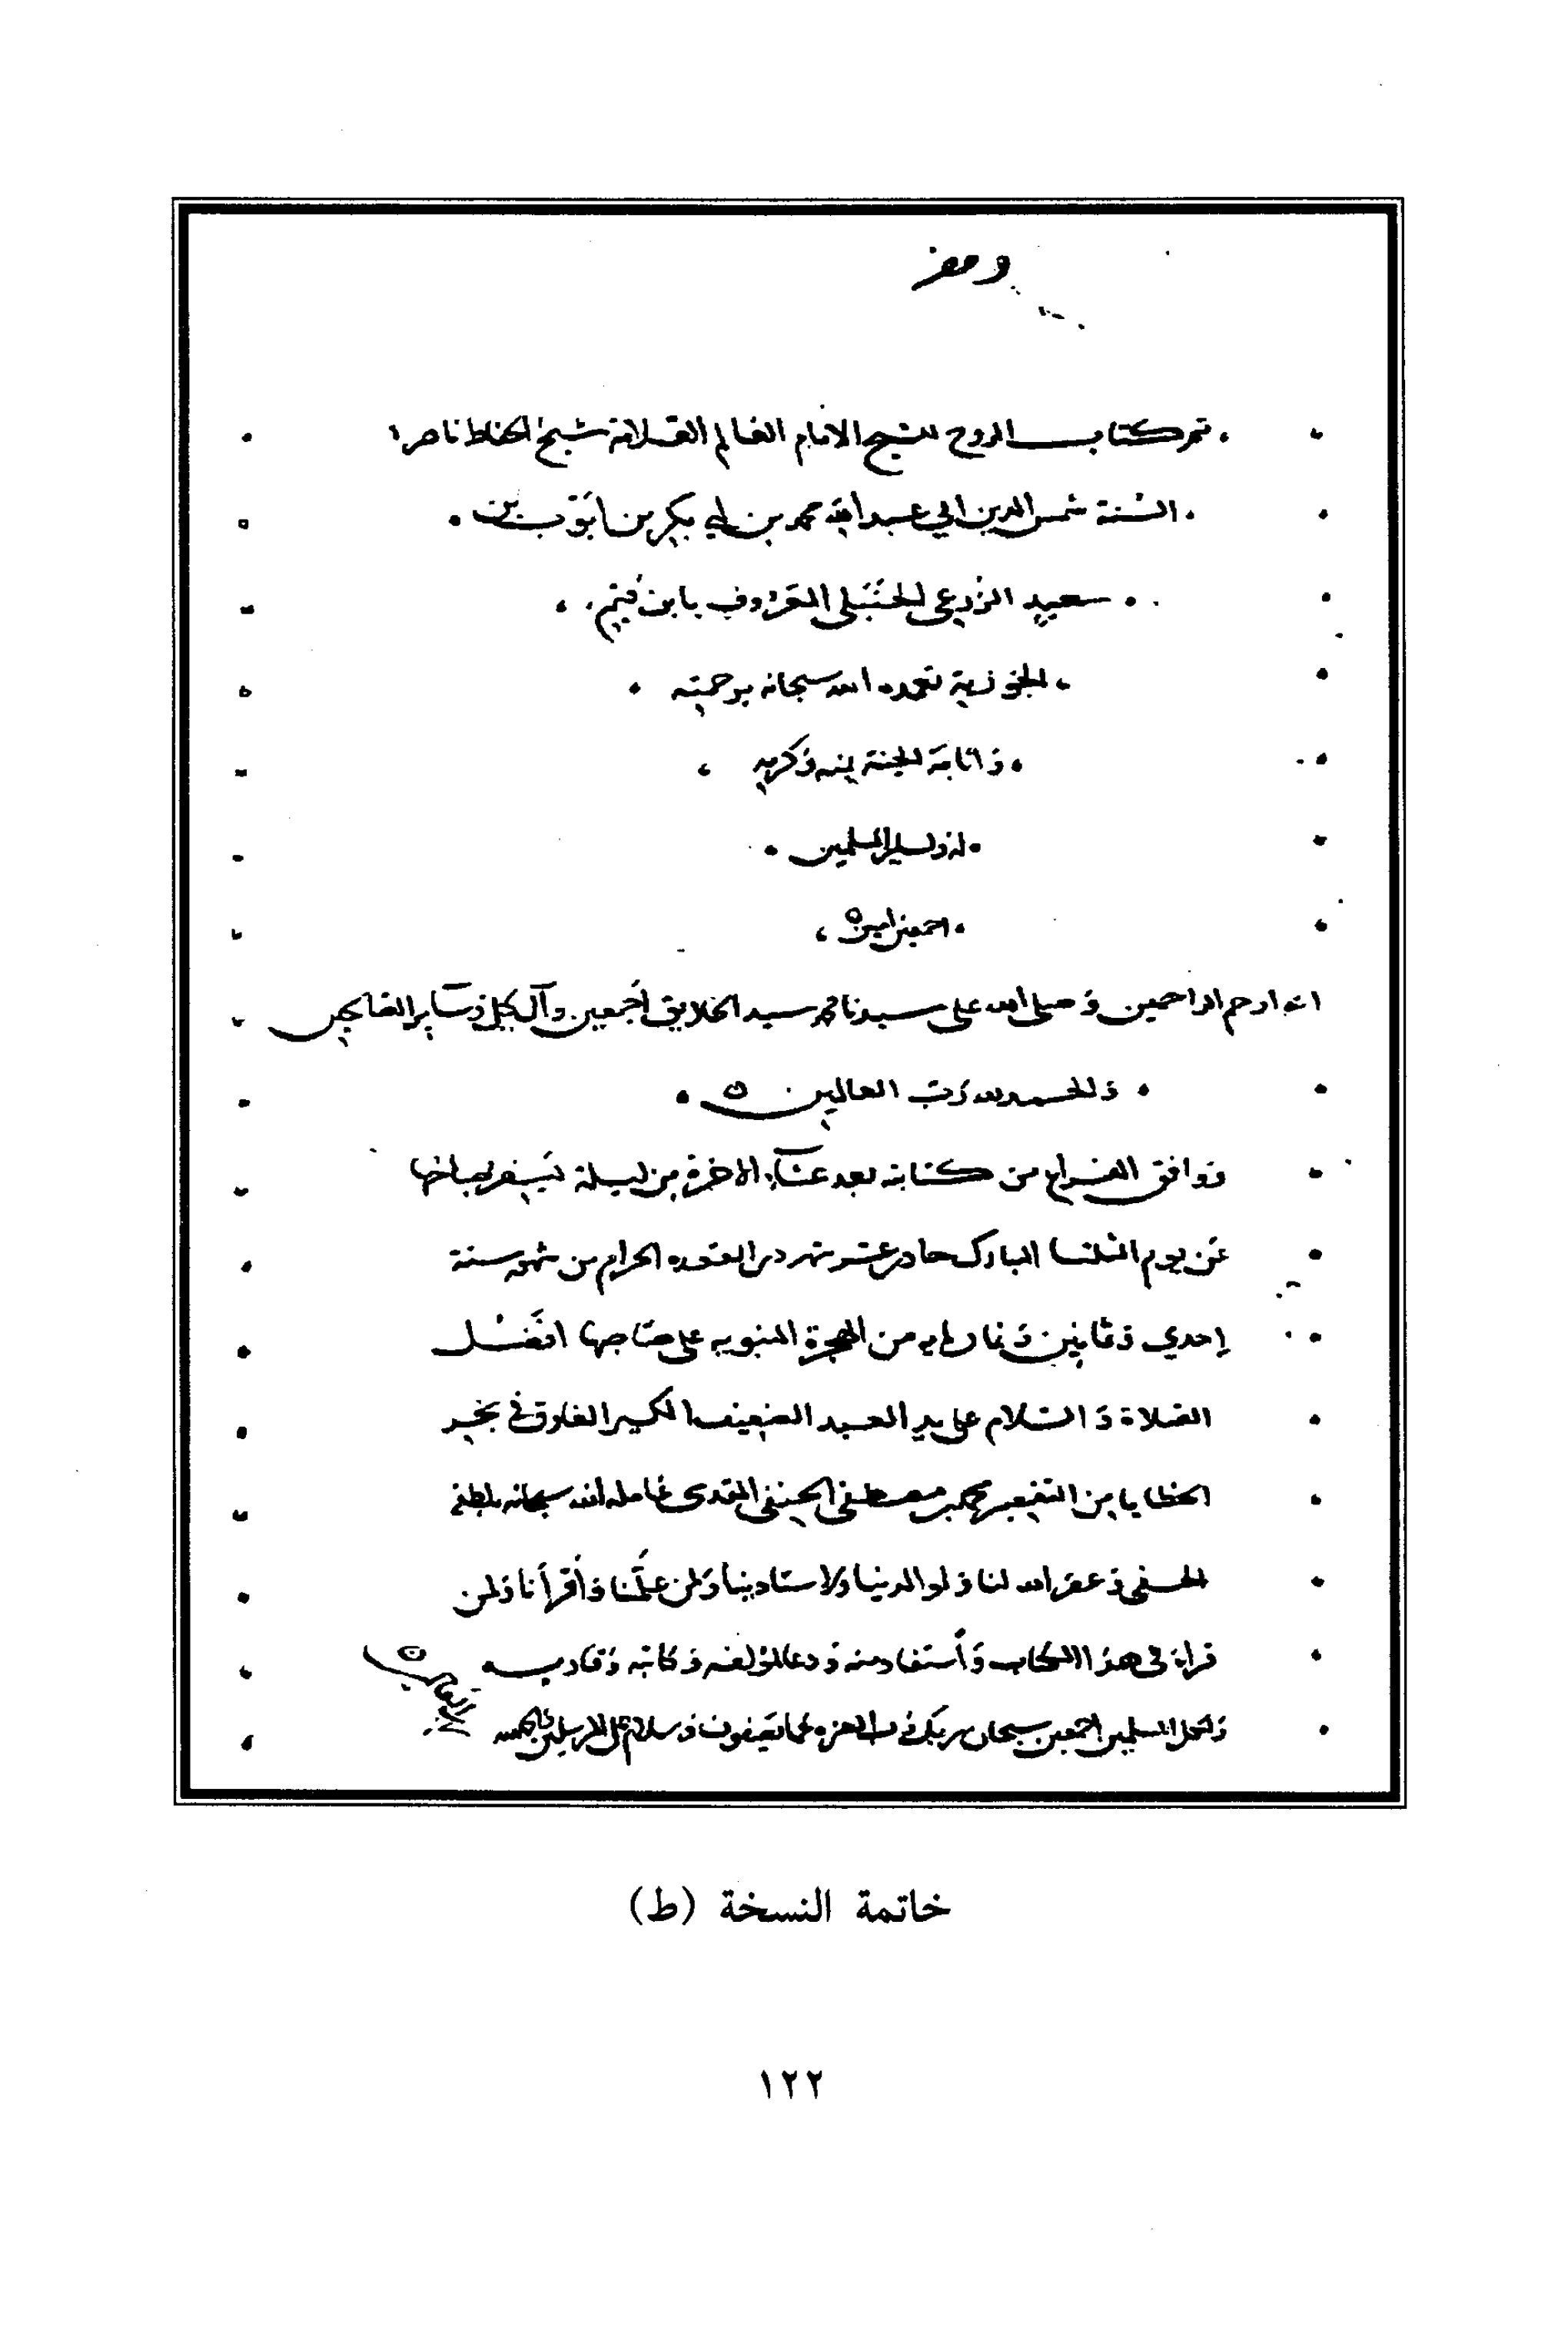 تم كتاب الروح للشيخ الامام العالم العلامة شيخ الحفاظ ناصر
السنة شمس الدين ابي عبد الله محمد بن ابي بكر بن ايوب بن
سعيد الزرعي الحنبلي المعروف بابن قيم
الجوزية تغمده الله سبحانه برحمته
واثابه الجنة بمنه وكرمه
اجمعين امين
انه ارحم الراحمين وصلى الله على سيدنا محمد سيد الخلايق اجمعين وآل كل وساير الصالحين
والحمد لله رب العالمين
ووافق الفراغ من كتابته بعد عشاء الاخرة من ليلة يسفر صباحها
عن يوم الثلثا المبارك حادي عشر شهر ذي القعده الحرام من شهور سنة
إحدي وثمانين وثمان مايه من الهجرة النبويه على صاحبها افضل
الصلاة والسلام على يد العبد الضعيف الكسير الغارق في بحر
الخطايا من التقصير محمد بن مصطفى الحنفي المقدسي عامله الله سبحانه بلطفه
الخفي وغفر الله لنا ولوالدينا ولاستادينا ولمن علمنا وأقرأنا ولمن
قرأ في هذا الكتاب وأستفاد منه ودعا لمؤلفه وكاتبه وقاريه
ولكل المسلمين اجمعين سبحان ربك رب العزه عما يصفون وسلام على المرسلين والحمد
خاتمة النسخة (ط)
١٢٢